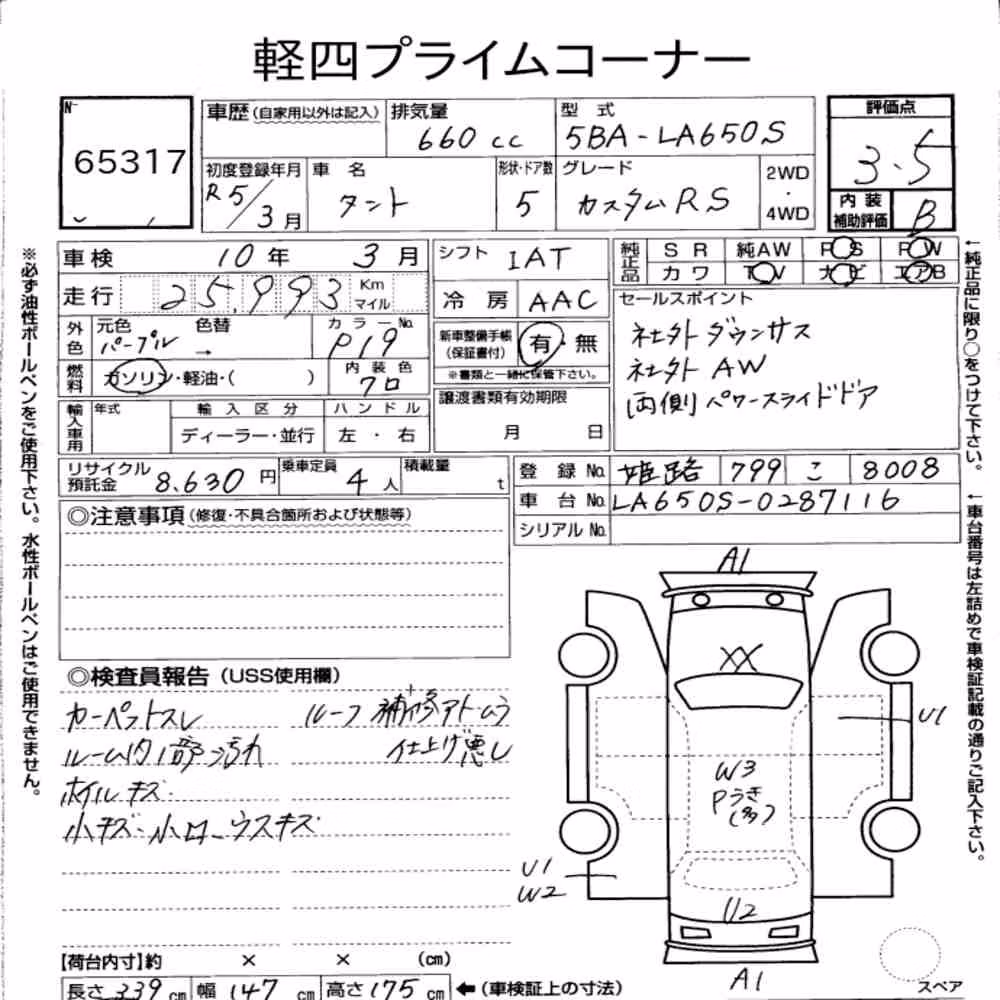 軽四プライムコーナー
No 65317
車歴 (自家用以外は記入) 排気量 660 cc 型式 5BA-LA650S 評価点 3.5
初度登録年月 R5/3月 車名 タント 形状・ドア数 5 グレード カスタムRS 2WD・4WD 内装補助評価 B
車検 10年 3月 シフト IAT 純正品 SR 純AW PS PW
カワ TV ナビ エアB
走行 25,993 Km マイル 冷房 AAC セールスポイント
外色 元色 パープル 色替 → カラーNo. P19 新車整備手帳 (保証書付) 有・無 社外ダウンサス
※書類と一緒に保管下さい。 社外AW
燃料 ガソリン・軽油・( ) 内装色 クロ 譲渡書類有効期限 両側パワースライドドア
輸入車用 年式 輸入区分 ハンドル
ディーラー・並行 左・右 月 日
リサイクル預託金 8.630円 乗車定員 4人 積載量 t 登録No. 姫路 799 こ 8008
車台No. LA650S-0287116
シリアルNo.
◎注意事項 (修復・不具合箇所および状態等)
◎検査員報告 (USS使用欄)
カーペットスレ ルーフ補修アトムラ
ルーム内1部汚れ 仕上げ悪し
ホイルキズ
小キズ・小凹・ウスキズ
A1
XX
U1
W3
Pうき
(多)
U1
W2
U2
A1
スペア
【荷台内寸】約 × × (cm)
長さ 339 cm 幅 147 cm 高さ 175 cm ←(車検証上の寸法)
※必ず油性ボールペンをご使用下さい。水性ボールペンはご使用できません。
←純正品に限り○をつけて下さい。
←車台番号は左詰めで車検証記載の通りご記入下さい。